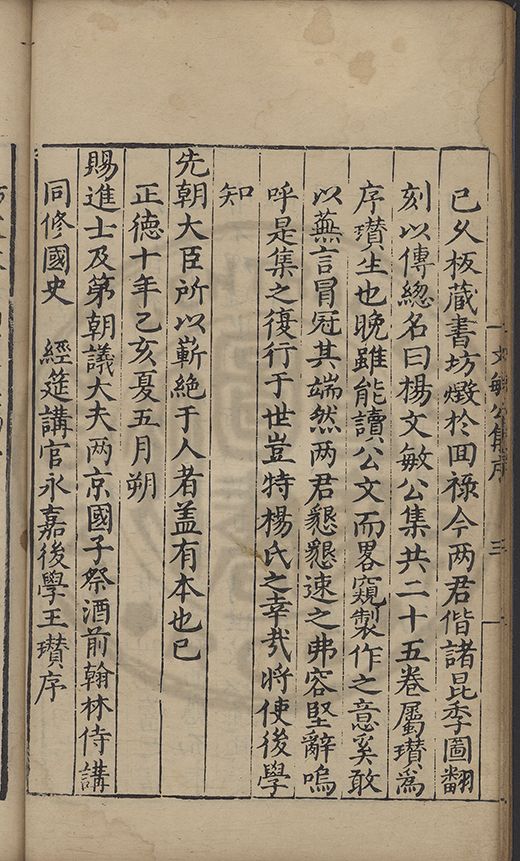 文敏公集序 三
已久板藏書坊燬於回祿今两君偕諸昆季圖翻
刻以傳緫名曰楊文敏公集共二十五卷屬瓉爲
序瓉生也晚雖能讀公文而畧窺製作之意奚敢
以蕪言冒冠其端然两君懇懇速之弗容堅辭嗚
呼是集之復行于世豈特楊氏之幸㢤將使後學
知
先朝大臣所以嶄絶于人者盖有本也已
正德十年乙亥夏五月朔
賜進士及第朝議大夫两京國子祭酒前翰林侍講
同修國史 經筵講官永嘉後學王瓉序